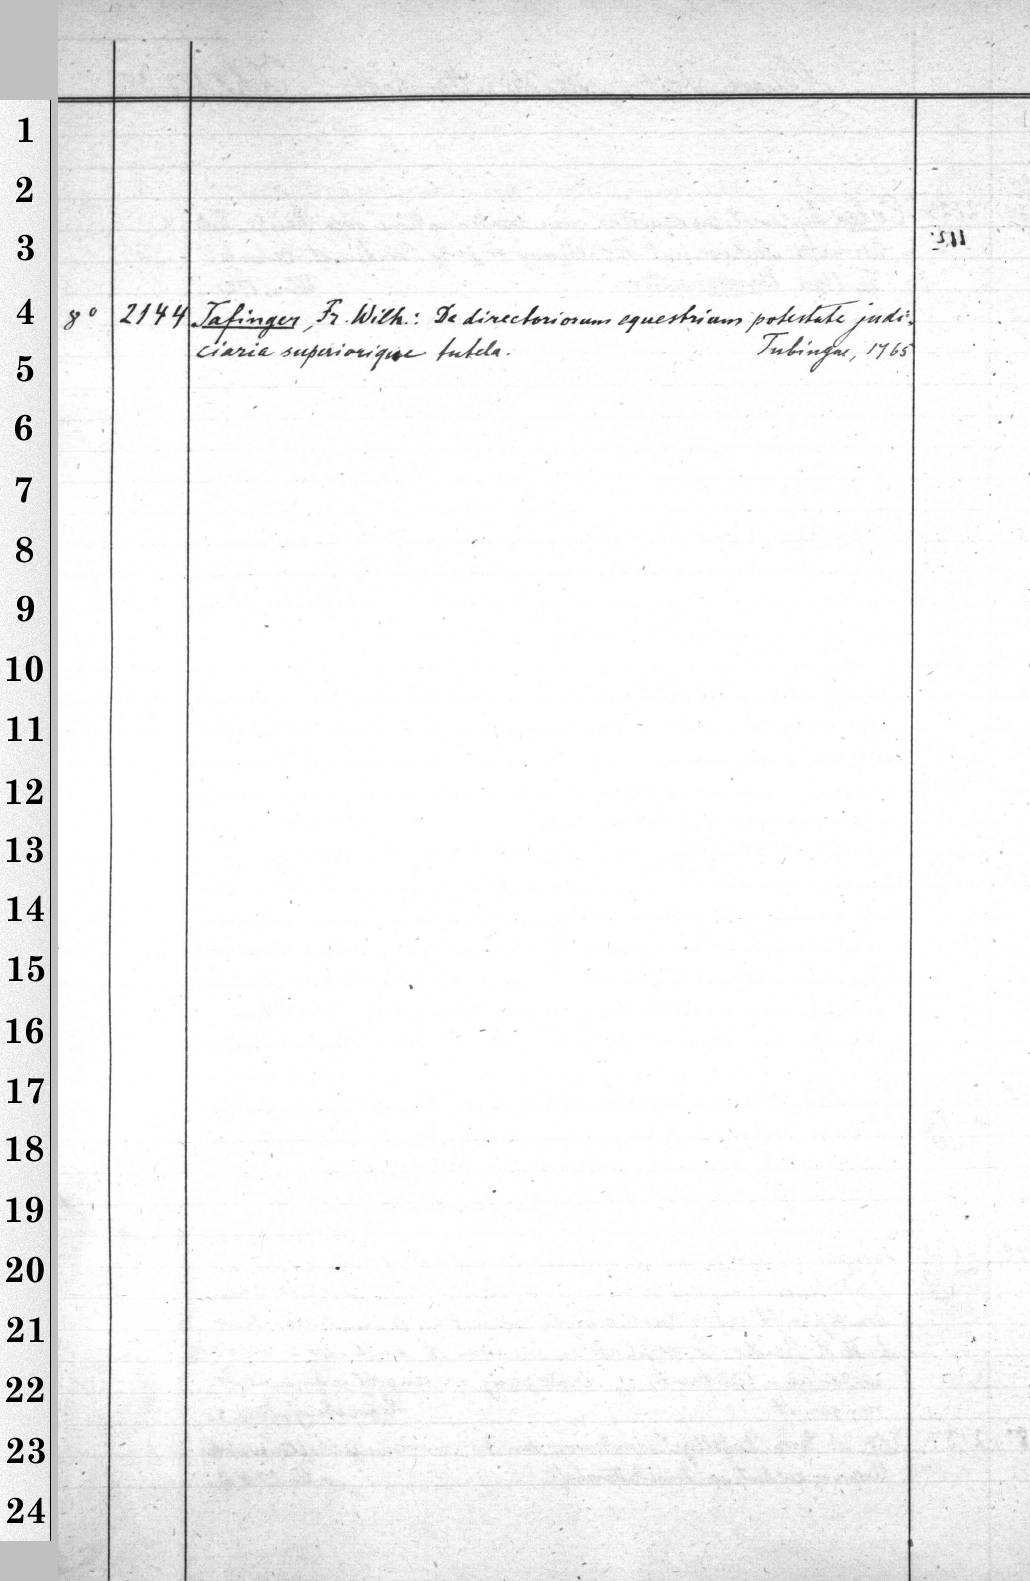 1
2
3
4 8° 2144 Tafinger, Fr. Wilh.: De directoriorum equestrium potestate judi-
ciaria superiorique tutela. Tubingae, 1765
5
6
7
8
9
10
11
12
13
14
15
16
17
18
19
20
21
22
23
24